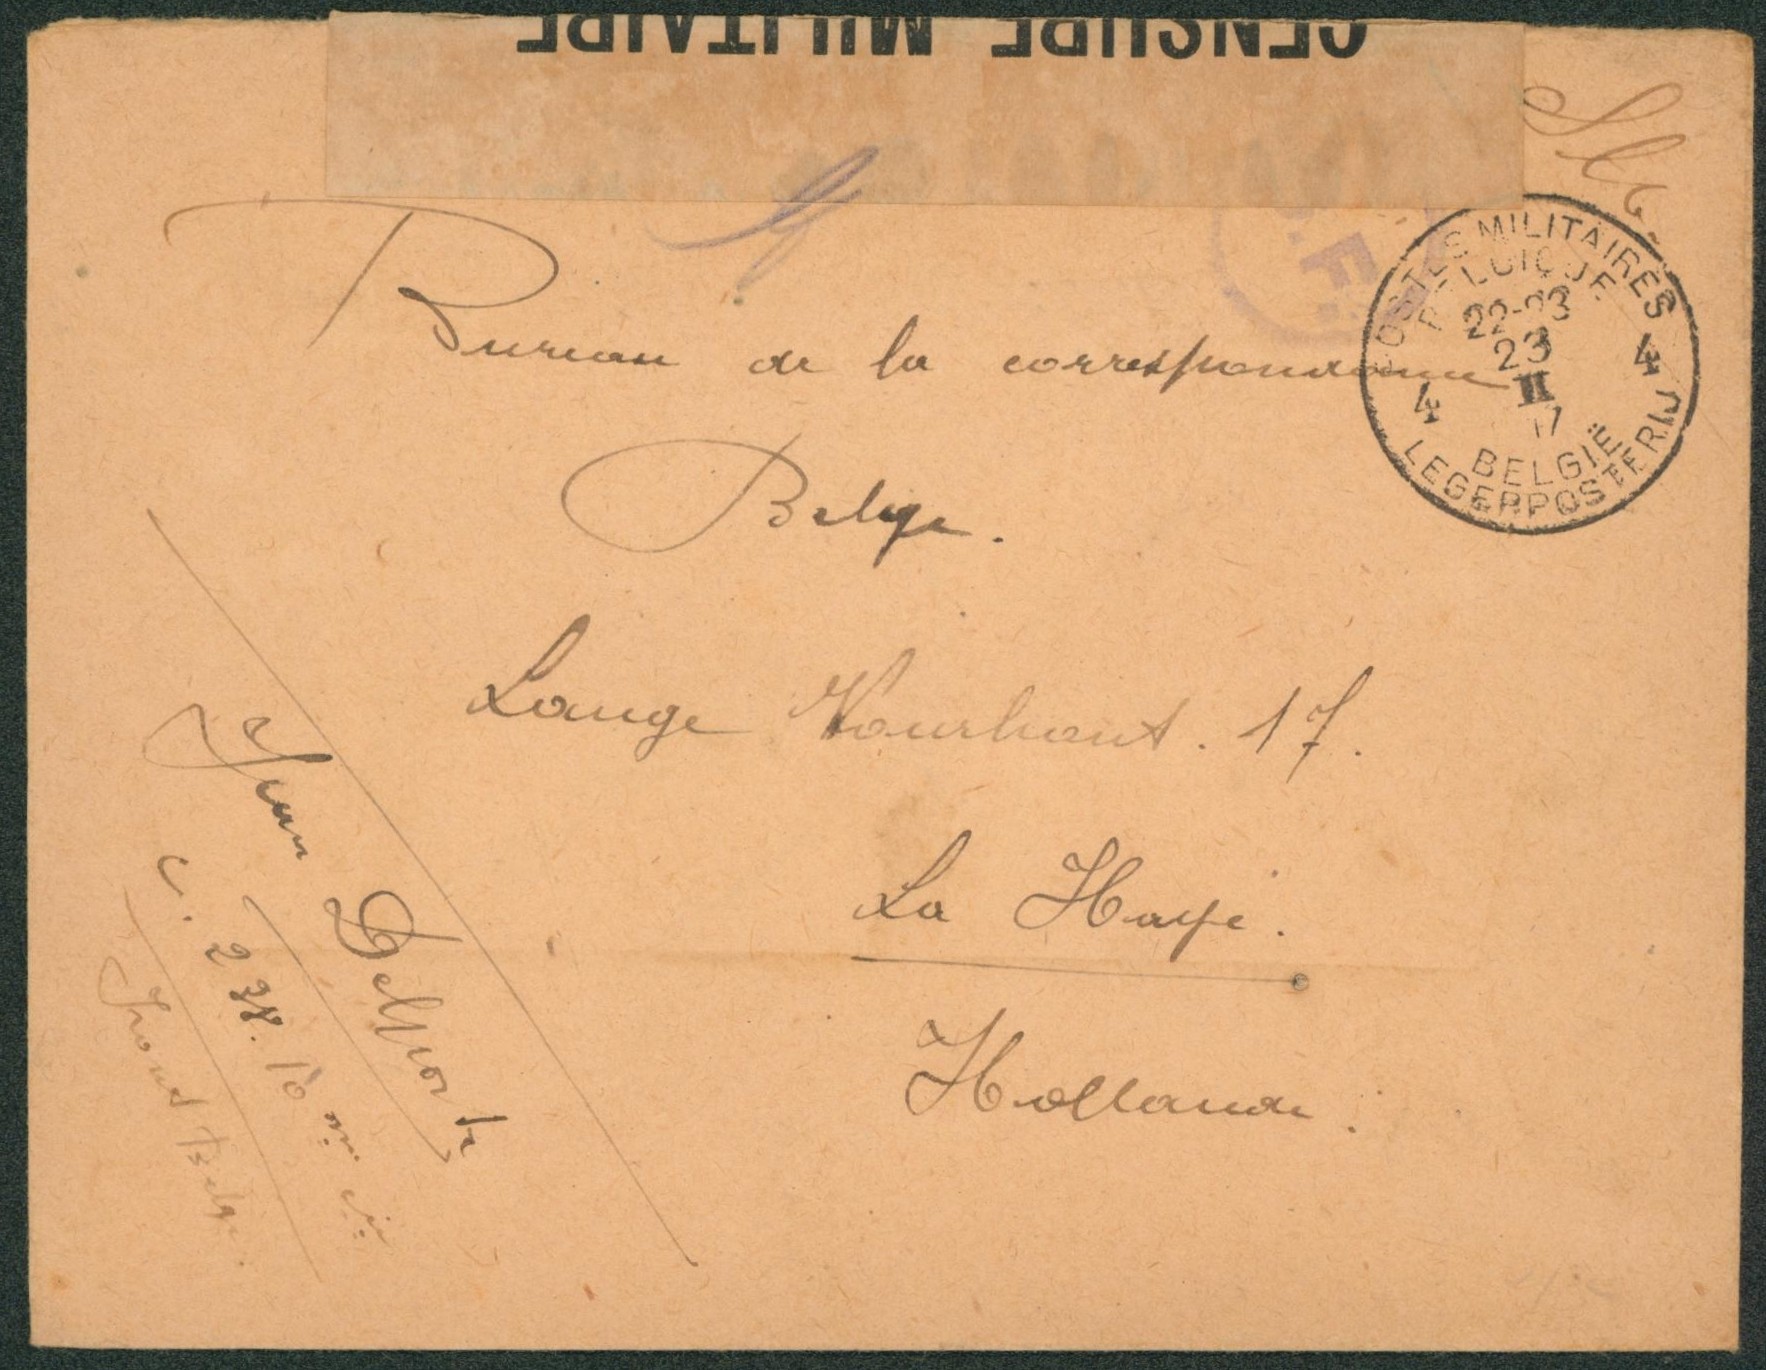 CENSURE MILITAIRE
S.M.
POSTES MILITAIRES
BELGIQUE
22-23
23
II
17
4 4
BELGIË
LEGERPOSTERIJ
Bureau de la correspondance
Belge.
Lange Vourhout. 17.
La Haye.
Hollande.
Jean Delporte
C. 238. 10 m. i.
Front Belge.